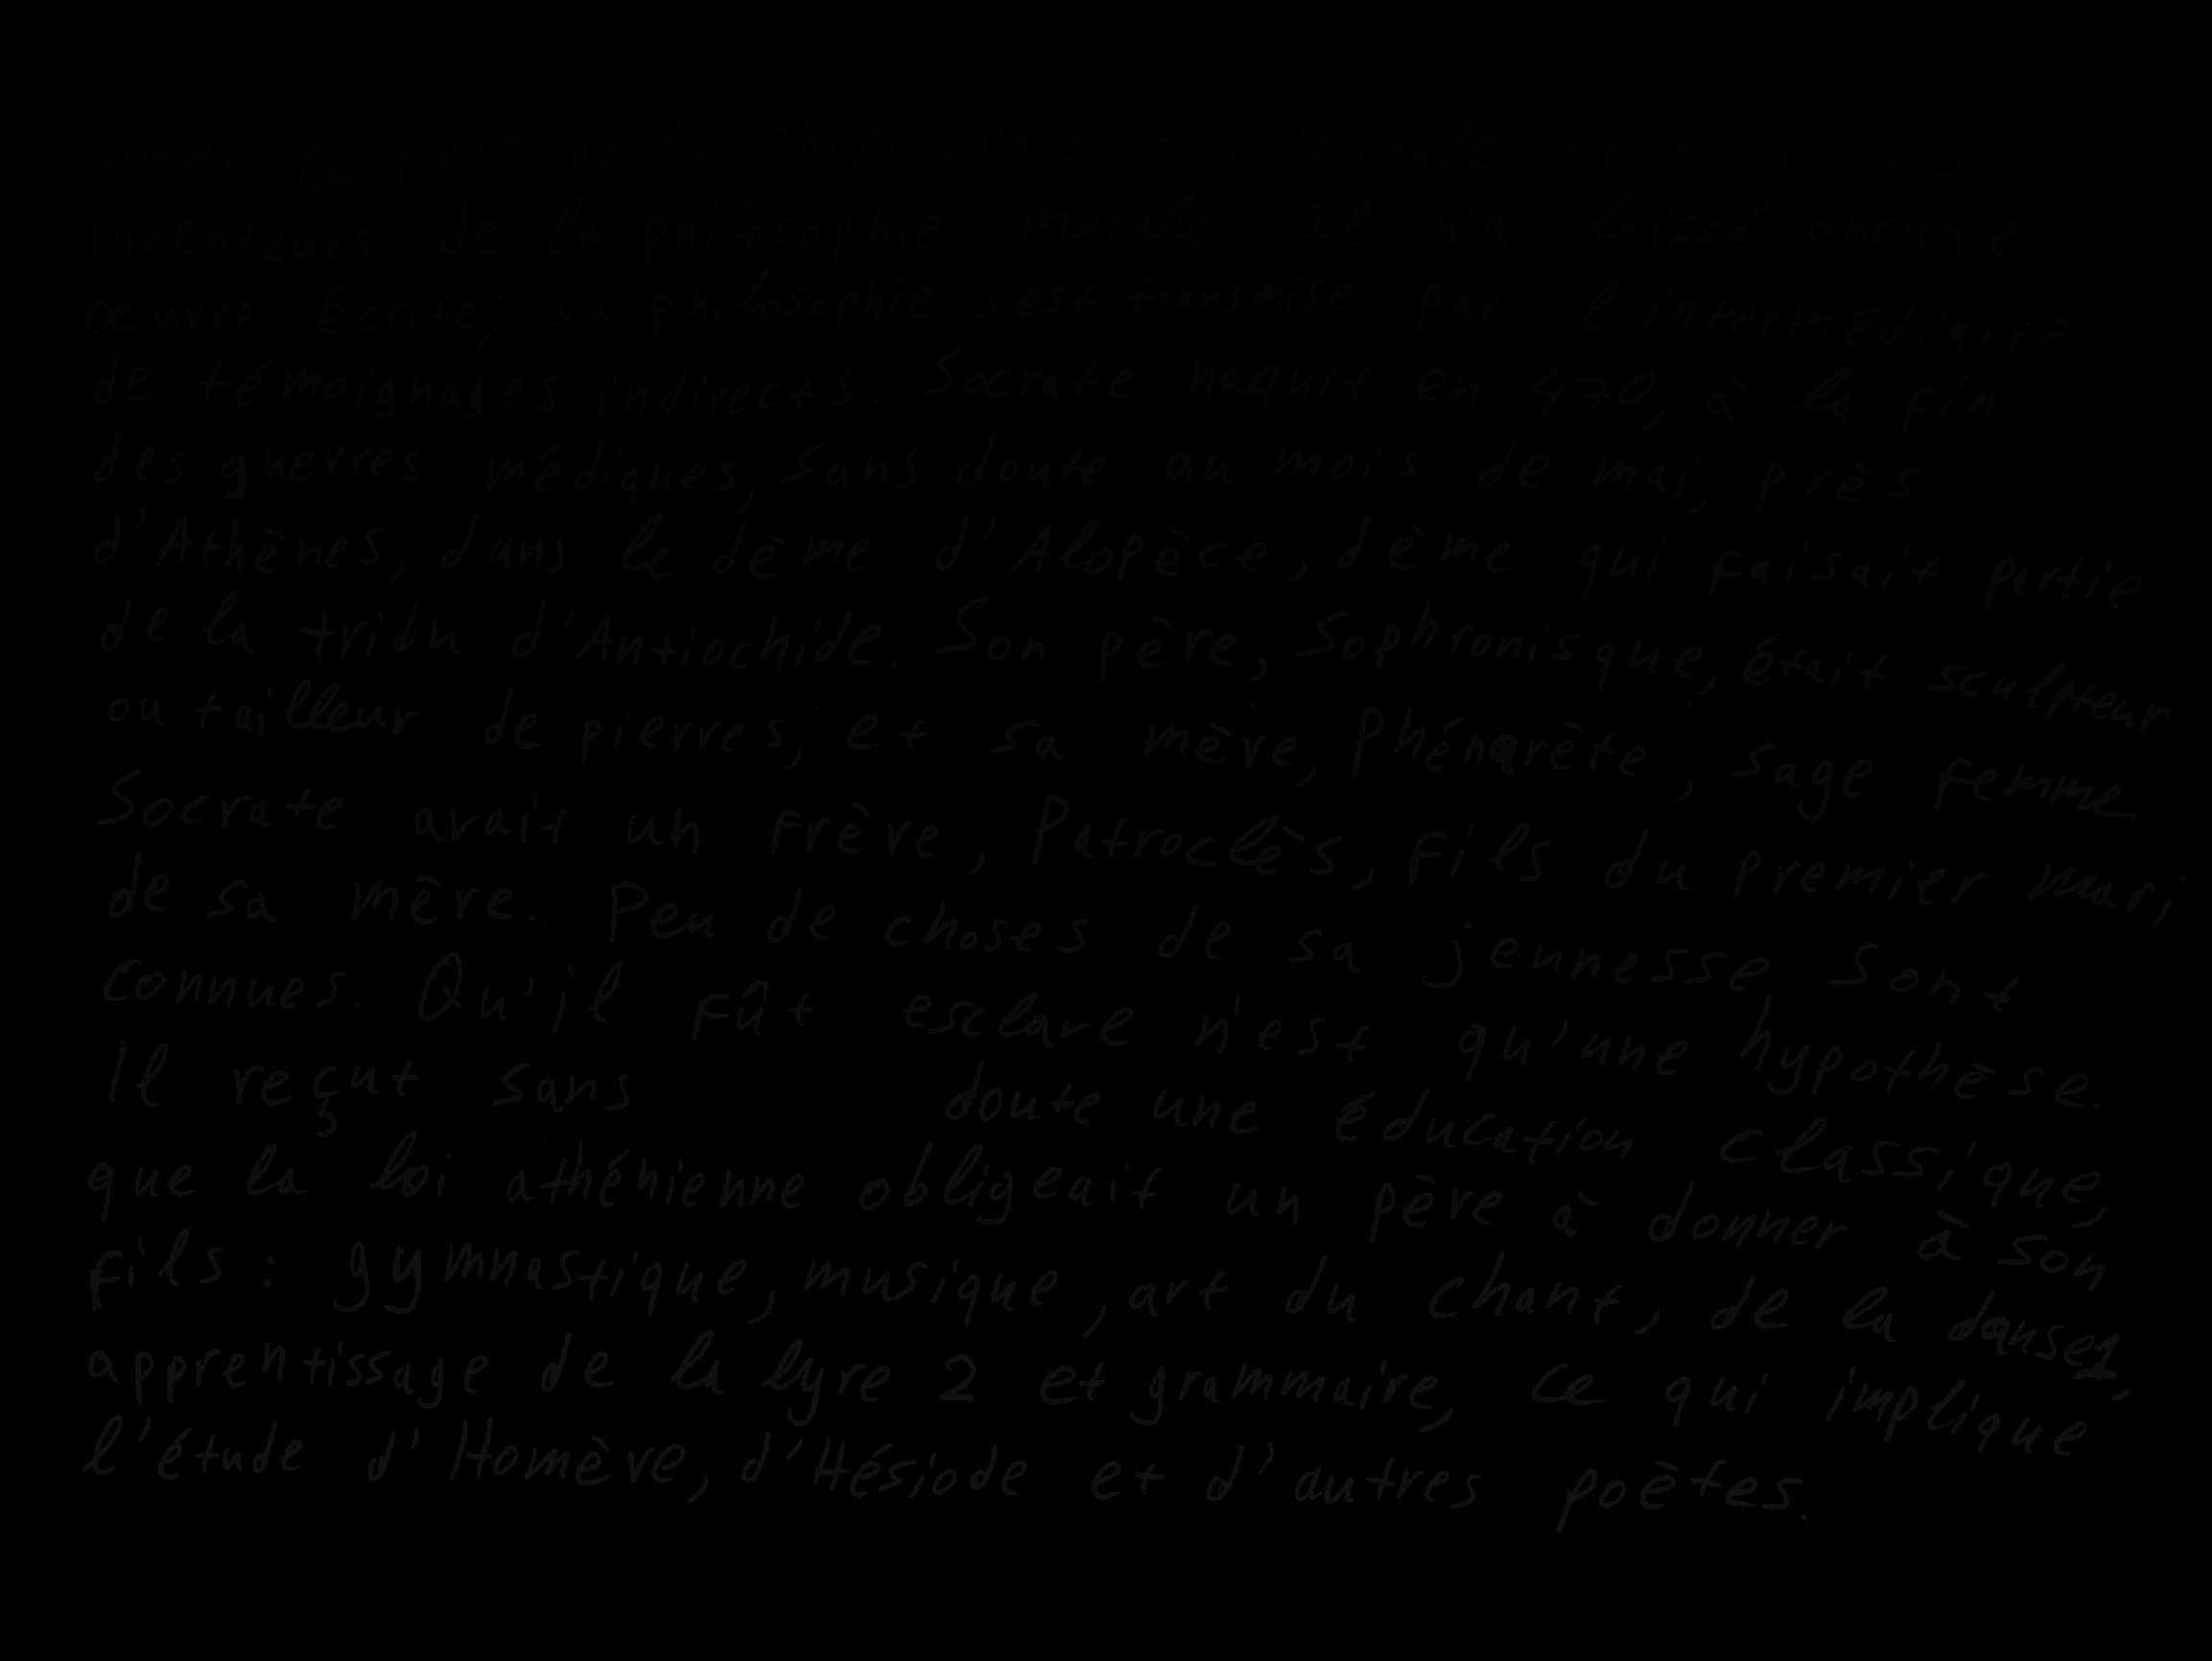 comme le père de la philosophie occidentale et l'un des
inventeurs de la philosophie morale. Il n'a laissé aucune
œuvre écrite; sa philosophie s'est transmise par l'intermédiaire
de témoignages indirects. Socrate naquit en 470, à la fin
des guerres médiques, sans doute au mois de mai, près
d'Athènes, dans le dème d'Alopèce, dème qui faisait partie
de la tribu d'Antiochide. Son père, Sophronisque, était sculpteur
ou tailleur de pierres; et sa mère, Phénarète, sage femme.
Socrate avait un frère, Patroclès, fils du premier mari
de sa mère. Peu de choses de sa jeunesse sont
connues. Qu'il fût esclave n'est qu'une hypothèse.
Il reçut sans doute une éducation classique,
que la loi athénienne obligeait un père à donner à son
fils : gymnastique, musique, art du chant, de la danse1,
apprentissage de la lyre 2 et grammaire, ce qui implique
l'étude d'Homère, d'Hésiode et d'autres poètes.